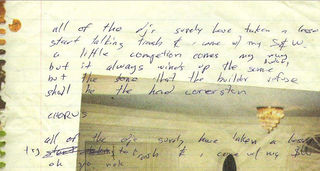 all of the dj's surely have taken a lesson
start talking trash &, come w/ my
a little competion comes my way
but it always winds up the same
but the stone that the builder refuse
shall be the head cornerston
CHORUS
all of the dj's surely have taken a lesson
trash &, come w/ my
ok